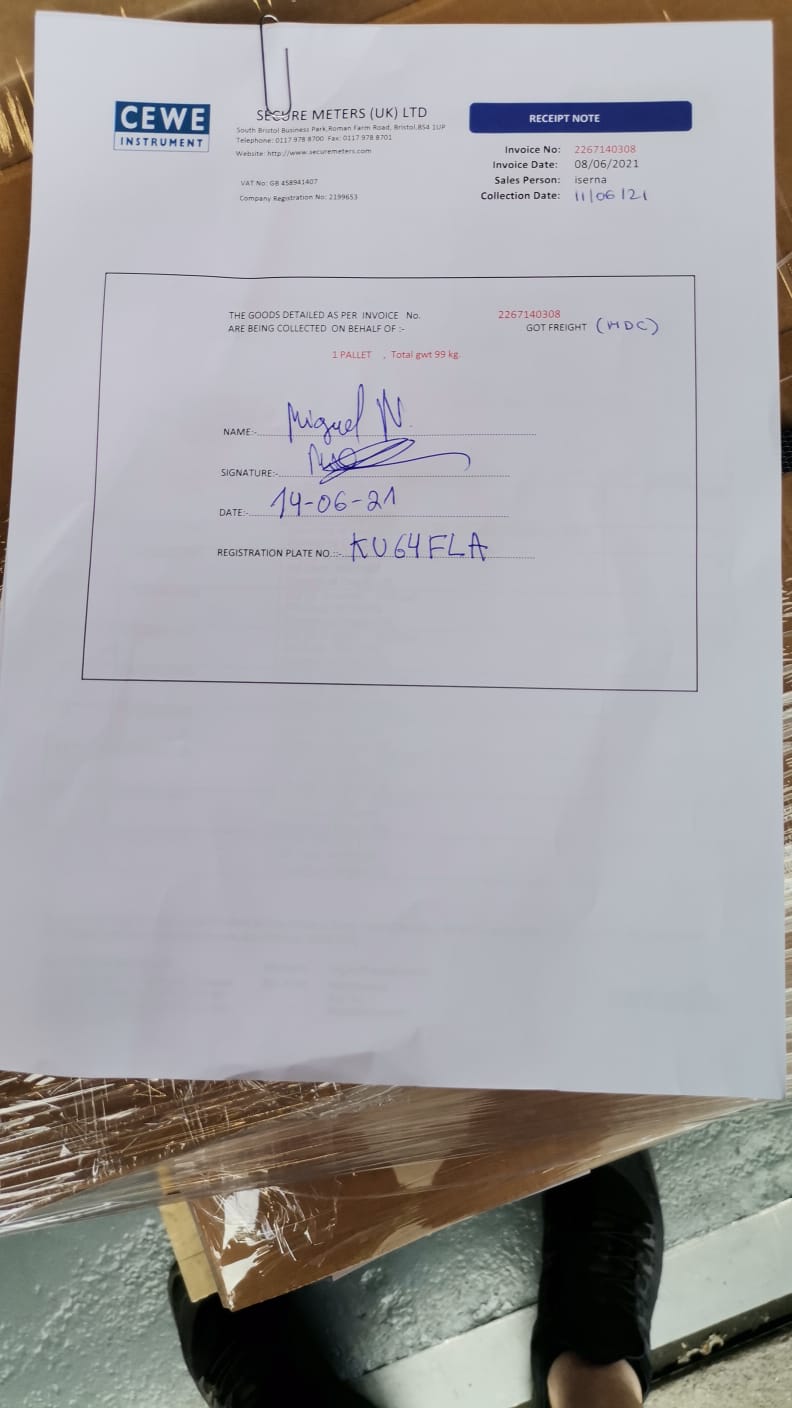 CEWE
INSTRUMENT
SECURE METERS (UK) LTD
South Bristol Business Park,Roman Farm Road, Bristol,BS4 1UP
Telephone: 0117 978 8700 Fax: 0117 978 8701
Website: http://www.securemeters.com
VAT No: GB 458941407
Company Registration No: 2199653
RECEIPT NOTE
Invoice No: 2267140308
Invoice Date: 08/06/2021
Sales Person: iserna
Collection Date: 11/06/21
THE GOODS DETAILED AS PER INVOICE No. 2267140308
ARE BEING COLLECTED ON BEHALF OF :- GOT FREIGHT (MDC)
1 PALLET , Total gwt 99 kg.
NAME:- Miguel N.
SIGNATURE:-
DATE:- 14-06-21
REGISTRATION PLATE NO.::- KU64FLA